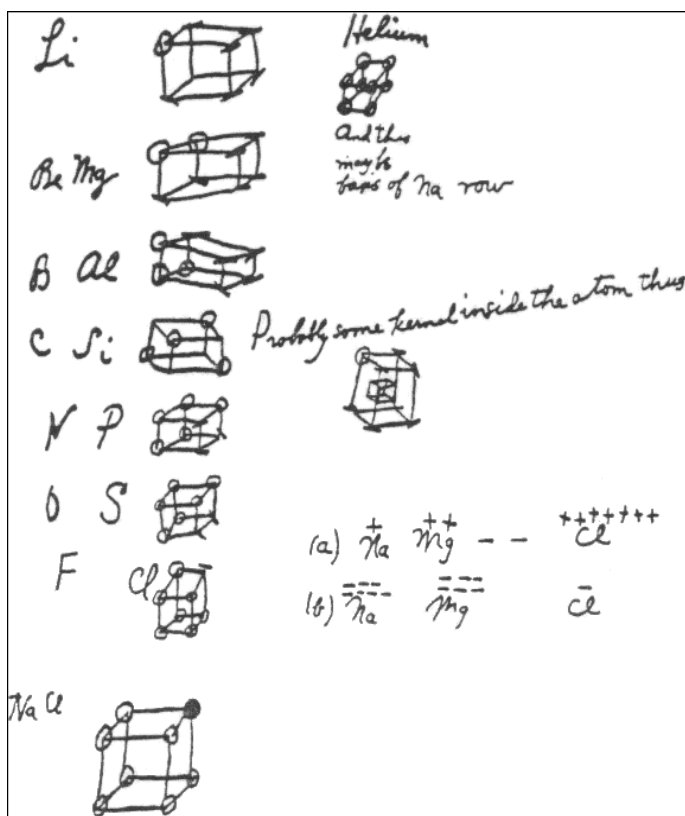 Li
Helium
And this
may be
basis of Na row
Be Mg
B Al
C Si
Probably some kernel inside the atom thus
N P
O S
F Cl
(a) + Na ++ Mg - - +++++++ Cl
(b) Na Mg - Cl
Na Cl